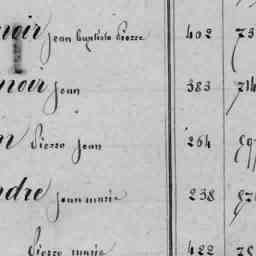 noir jean baptiste Pierre 402 73
noir jean 383 714
Pierre jean 264
ndre jean marie 238
Pierre marie 422